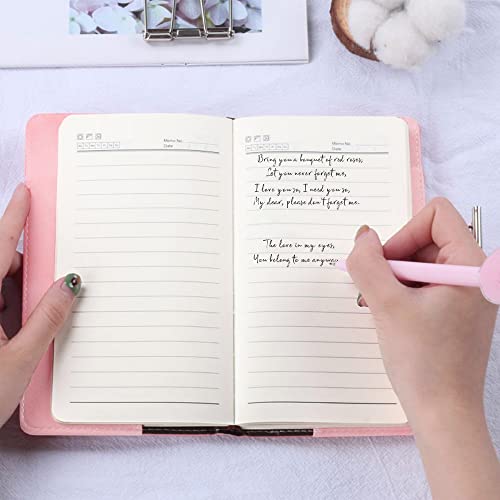 Memo No.
Mo Tu We Th Fr Sa Su
Date
Memo No.
Mo Tu We Th Fr Sa Su
Date
Bring you a bouquet of red roses,
Let you never forget me,
I love you so, I need you so,
My dear, please don't forget me.
The love in my eyes,
You belong to me anyway